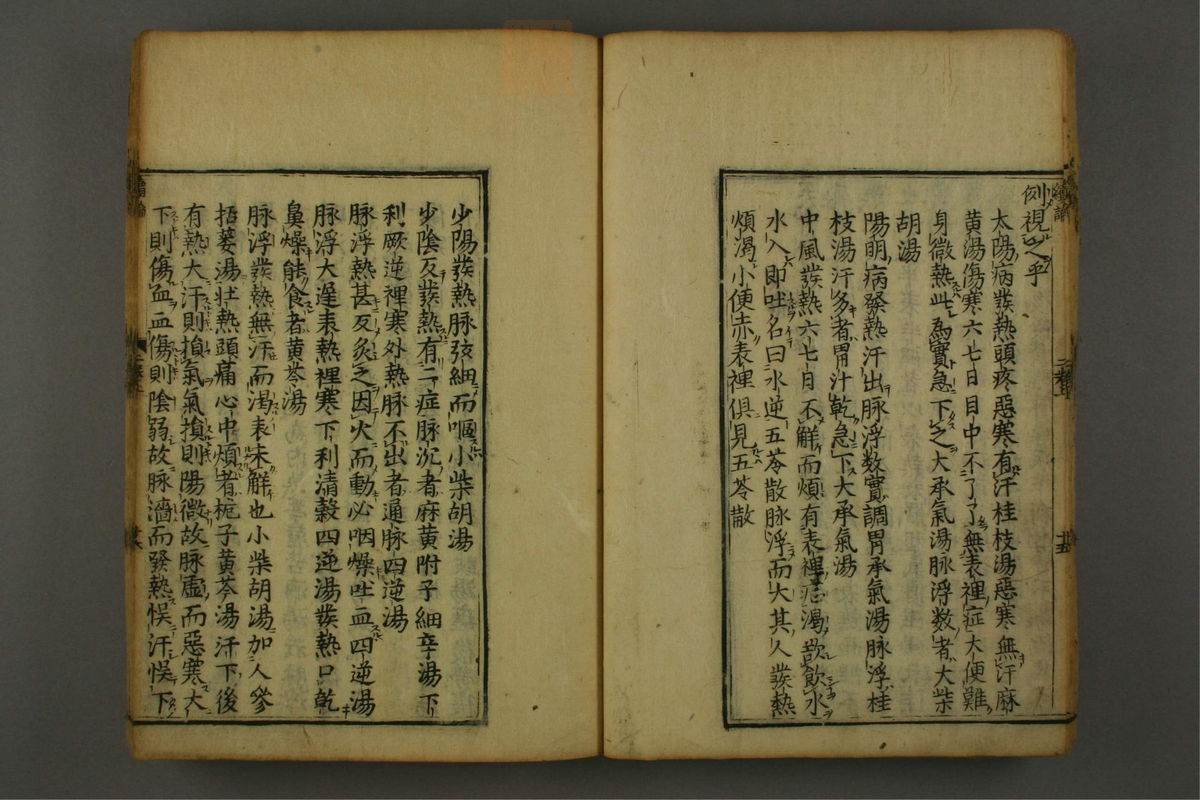 例視以乎
太陽病發熱頭疼惡寒有汗桂枝湯惡寒無汗麻
黃湯傷寒六七日目中不了了無表裡症大便難
身微熱此為實急下之大承氣湯脉浮数者大柴
胡湯
陽明病發熱汗出脉浮数實調胃承氣湯脉浮桂
枝湯汗多者胃汁乾急下大承氣湯
中風發熱六七日不觧而煩有表裡症渴欲飲水
水入即吐名曰水逆五苓散脉浮而大其人發熱
煩渴小便赤表裡俱見五苓散
少陽發熱脉弦細而嘔小柴胡湯
少陰反發熱有二症脉沉者麻黃附子細辛湯下
利厥逆裡寒外熱脉不出者通脉四逆湯
脉浮熱甚反灸之因火而動必咽燥吐血四逆湯
脉浮大遲表熱裡寒下利清穀四逆湯發熱口乾
鼻燥能食者黃芩湯
脉浮發熱無汗而渴表未觧也小柴胡湯加人參
括蔞湯壯熱頭痛心中煩者梔子黃芩湯汗下後
有熱大汗則損氣氣損則陽微故脉虛而惡寒大
下則傷血血傷則陰弱故脉濇而發熱悞汗悞下